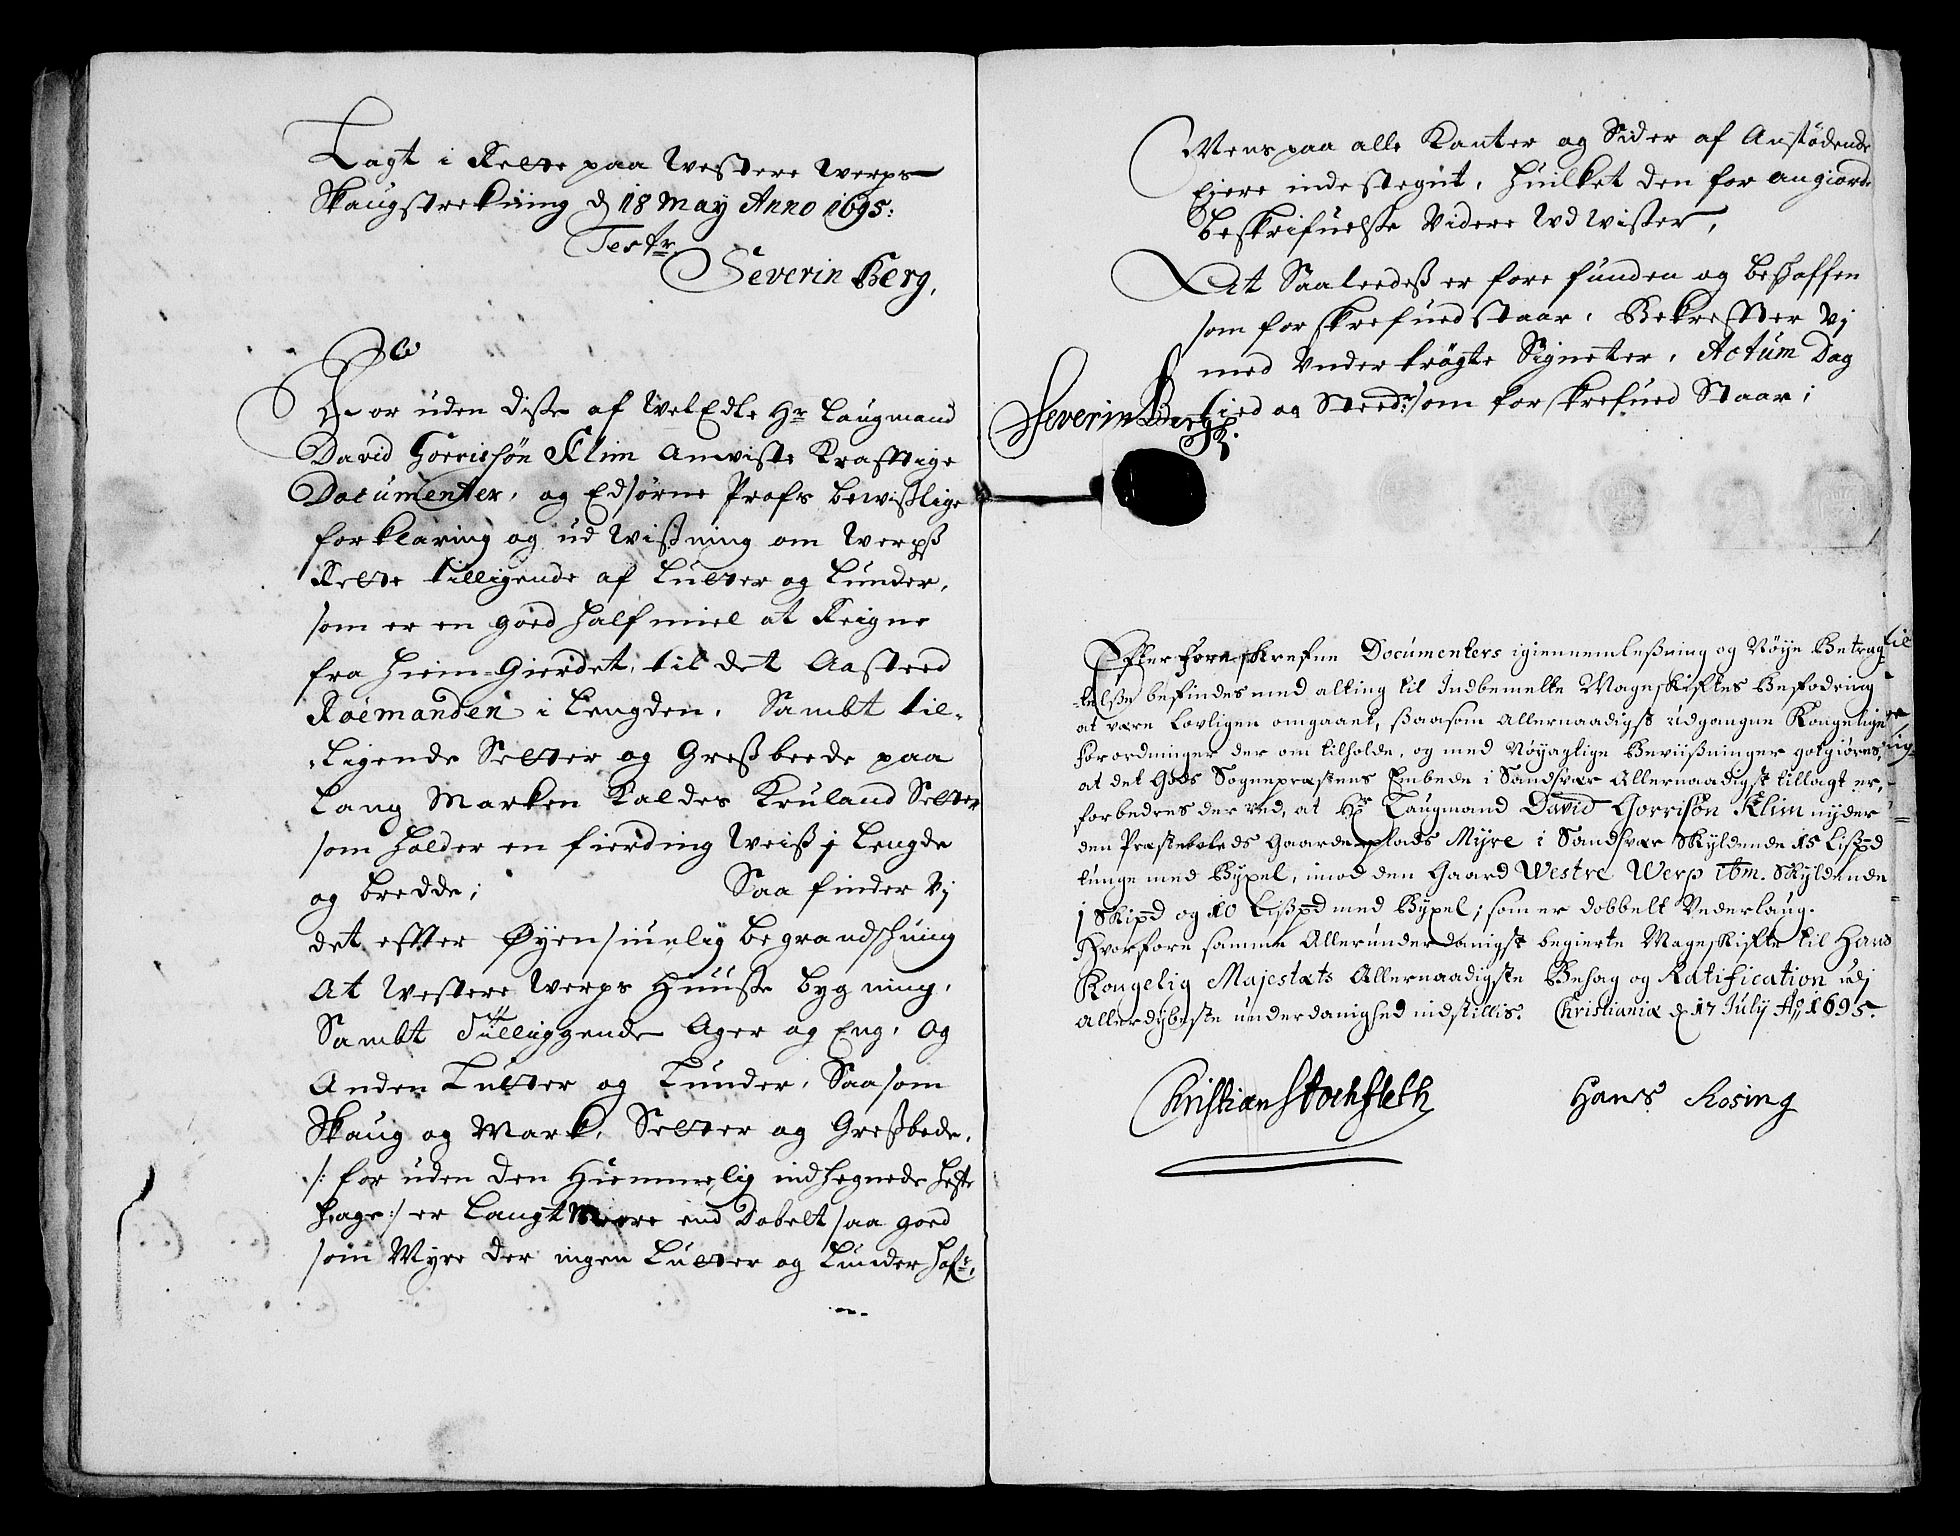 Lagt i Rette paa Westere Werps
Skaugstrekning d 18 May Anno 1695:
Test.
Severin Berg,
For uden disse af WelEdle Hr Laugmand
David Gorrissøn Klim Anwiste Krafftige
Documenter, og Edsørne Profs bewislige
forklaring og ud Wisning om Werps
Rette tilligende af Lutter og Lunder,
som er en goed half miel at Reigne
fra Hiem-Gierdet, til det Aasteed
Roemanden i Lengden, Sambt til-
-ligende Setter og Gresbeede paa
Lang Marken Kaldes Kruland Setter
som holder en fierding Weis j Lengde
og bredde; Saa finder Vj
det effter Øyensiunlig begrandshning
At Westere Werps Huusse bygning,
Sambt Tilliggende Ager og Eng, Og
Anden Lutter og Lunder, Saasom
Skaug og Mark, Setter og Gresbede,
/: for uden den Hiemmelig indhegnede Heste
Hage :/ er Langt Meere end Dobelt saa goed
som Myre der ingen Lutter og Lunder hafr,
Mens paa alle Kanter og Sider af Anstødende
Eiere indestegnt, huilket den for angiorde
beskrifuelse Videre Udwiser,
At Saaleedes er forefunden og beshaffen
som forskrefued staar, Bekreffter Vj
med Undertrøgte Signeter, Actum Dag
tied og Steed som forskrefued Staar;
Severin Berg
Efter foreskrefne Documenters igiennemlesning og Nøye Betrag-
-telse befindes med alting til Indbemelte Mageskiftes Befodring
at være Lovligen omgaaet, saasom Allernaadigst udgangne Kongelige
Forordninger der om tilholde, og med Nøyaglige Beviisninger gotgiøres,
at det Gods Sognepræstens Embede i Sandsvær Allernaadigst tillagt er,
forbedres der ved, at Hr Laugmand David Gorrisøn Klim nyder
den Præstebolets Gaardeplads Myre i Sandsvær Skyldende 15 Lispd
tunge med Bypel, imod den Gaard Westre Werp ibm. Skyldende
1 Skipd og 10 Lispd med Bypel; som er dobbelt Vederlaug.
Hvorfore samme Allerunderdanigst begierte Mageskifte til Hans
Kongelig Majestæts Allernaadigste Behag og Ratification udj
Allerdybeste underdanighed indstillis. Christiania d 17 July Ao 1695.
Christian Stochfleth Hans Rosing